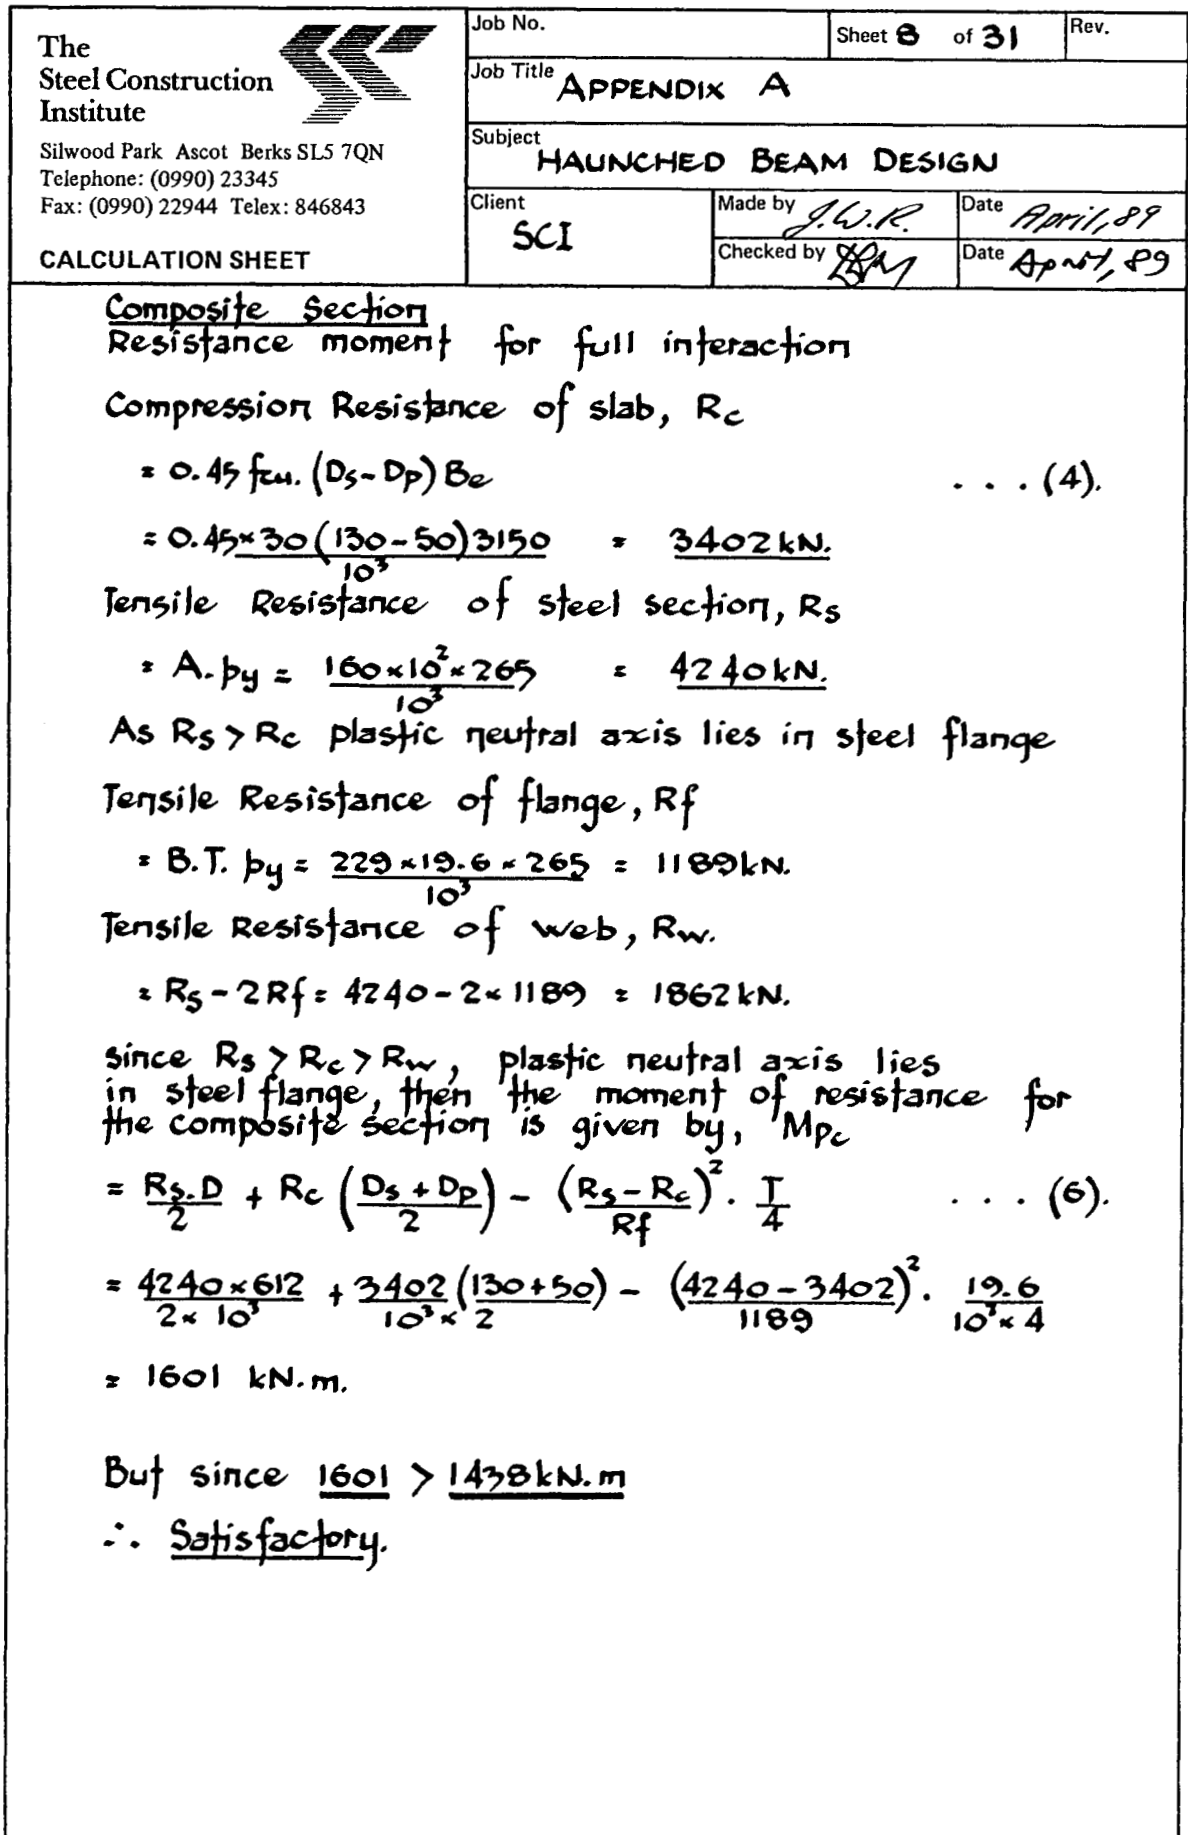 The
Steel Construction
Institute
Silwood Park Ascot Berks SL5 7QN
Telephone: (0990) 23345
Fax: (0990) 22944 Telex: 846843
CALCULATION SHEET
Job No.
Sheet 8 of 31
Rev.
Job Title APPENDIX A
Subject
HAUNCHED BEAM DESIGN
Client
SCI
Made by J.W.R.
Date April, 89
Checked by
Date April, 89
Composite Section
Resistance moment for full interaction
Compression Resistance of slab, Rc
= 0.45 fcu. (Ds - Dp) Be . . . (4).
= 0.45 × 30 (130 - 50) 3150 / 10³ = 3402 kN.
Tensile Resistance of steel section, Rs
= A. py = 160 × 10² × 265 / 10³ = 4240 kN.
As Rs > Rc plastic neutral axis lies in steel flange
Tensile Resistance of flange, Rf
= B.T. py = 229 × 19.6 × 265 / 10³ = 1189 kN.
Tensile Resistance of web, Rw.
= Rs - 2Rf = 4240 - 2 × 1189 = 1862 kN.
since Rs > Rc > Rw, plastic neutral axis lies
in steel flange, then the moment of resistance for
the composite section is given by, Mpc
= Rs.D / 2 + Rc (Ds + Dp / 2) - (Rs - Rc)² / Rf . T / 4 . . . (6).
= 4240 × 612 / 2 × 10³ + 3402 / 10³ × (130 + 50) / 2 - (4240 - 3402)² / 1189 . 19.6 / 10³ × 4
= 1601 kN.m.
But since 1601 > 1438 kN.m
∴ Satisfactory.